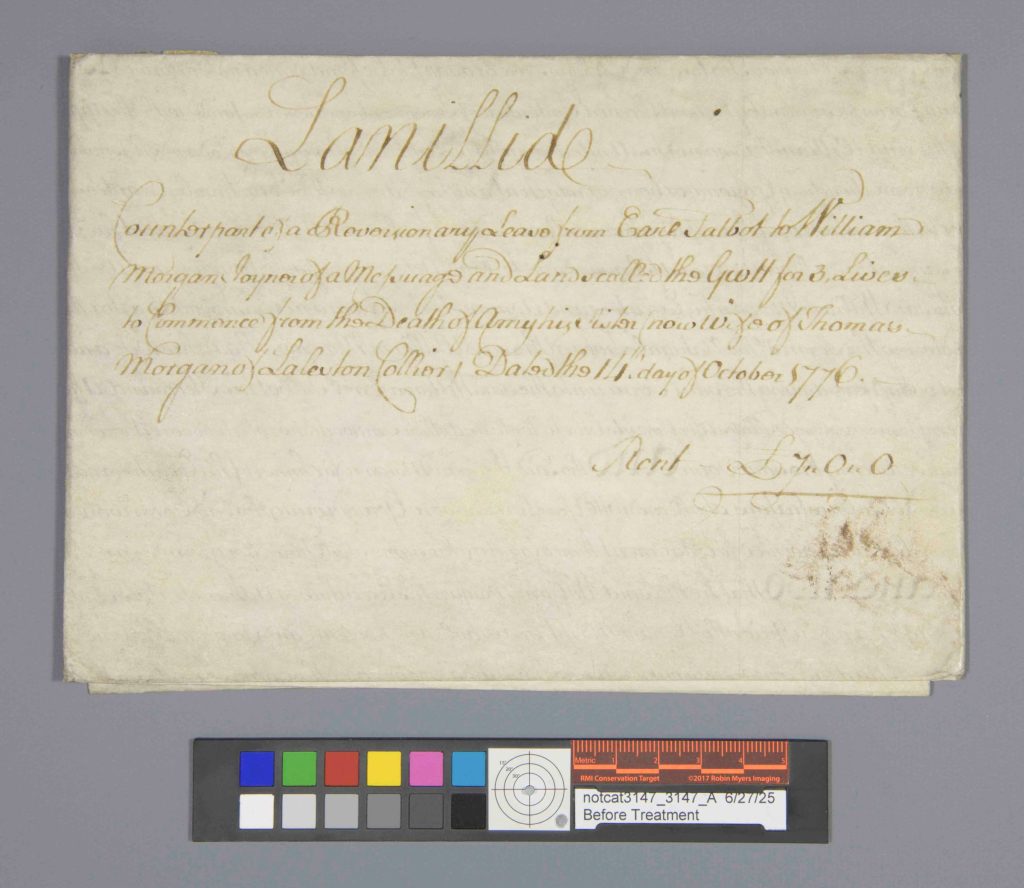 Lanillid
Counterpart of a Reversionary Lease from Earl Talbot to William
Morgan Joyner of a Messuage and Lands call'd the Gwtt for 3 Lives
to Commence from the Death of Amy his Sister now Wife of Thomas
Morgan of Laleston Collier / Dated the 14th day of October 1776.
Rent £7"0"0
Metric 1 2 3 4 5
RMI Conservation Target ©2017 Robin Myers Imaging
notcat3147_3147_A 6/27/25
Before Treatment